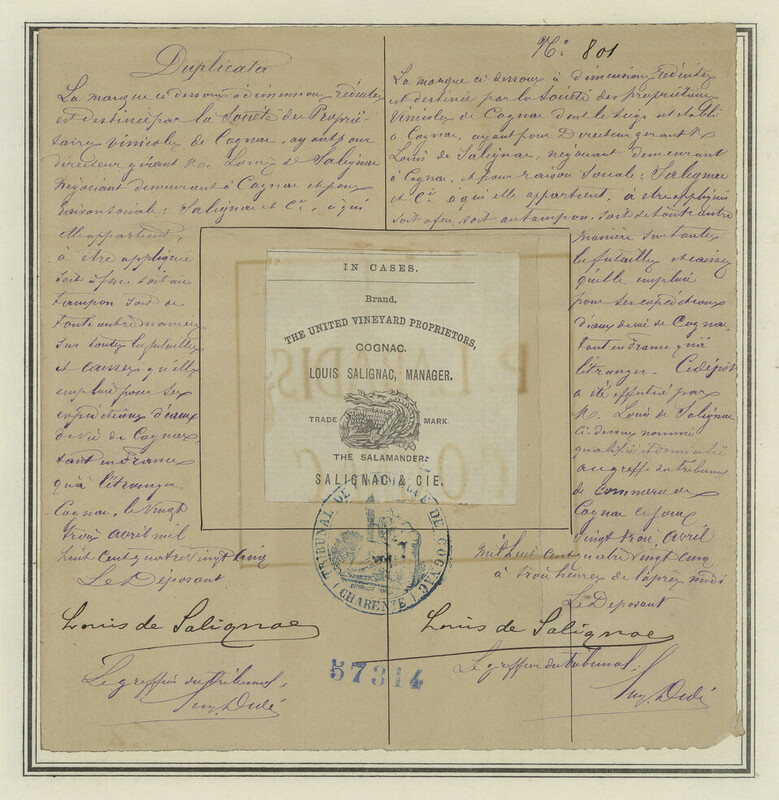 Duplicata
La marque ci dessous à dimensions réduites
est destinée par la Société des Proprié-
taires Vinicoles de Cognac, ayant pour
directeur gérant M. Louis de Salignac
Négociant demeurant à Cognac et pour
raison sociale: Salignac et Cie, à qui
elle appartient,
à être appliquée
soit à feu soit au
tampon soit de
toute autre manière
sur toutes les futailles
et caisses qu'elle
emploie pour ses
expéditions d'eaux
de vie de Cognac
tant en France
qu'à l'étranger.
Cognac, le vingt
trois avril mil
huit cent quatre vingt cinq
Le Déposant
Louis de Salignac
Le greffier du tribunal,
No 801
La marque ci dessous à dimensions réduites
est destinée par la Société des propriétaires
Vinicoles de Cognac dont le siège est établi
à Cognac, ayant pour Directeur gérant M.
Louis de Salignac, négociant demeurant
à Cognac, et pour raison Sociale: Salignac
et Cie à qui elle appartient, à être appliquée
soit à feu, soit au tampon, soit de toute autre
manière sur toutes
les futailles et caisses
qu'elle emploie
pour ses expéditions
d'eaux de vie de Cognac,
tant en France qu'à
l'étranger. Ce dépôt
a été effectué par
M. Louis de Salignac
ci-dessus nommé
qualifié et domicilié
au greffe du tribunal
de commerce de
Cognac ce jour
vingt trois avril
mil huit cent quatre vingt cinq
à trois heures de l'après midi
Le Deposant
Louis de Salignac
Le greffier du tribunal,
IN CASES.
Brand.
THE UNITED VINEYARD PROPRIETORS,
COGNAC.
LOUIS SALIGNAC, MANAGER.
TRADE MARK
THE SALAMANDER.
SALIGNAC & CIE.
TRIBUNAL DE COGNAC
(CHARENTE)
57314